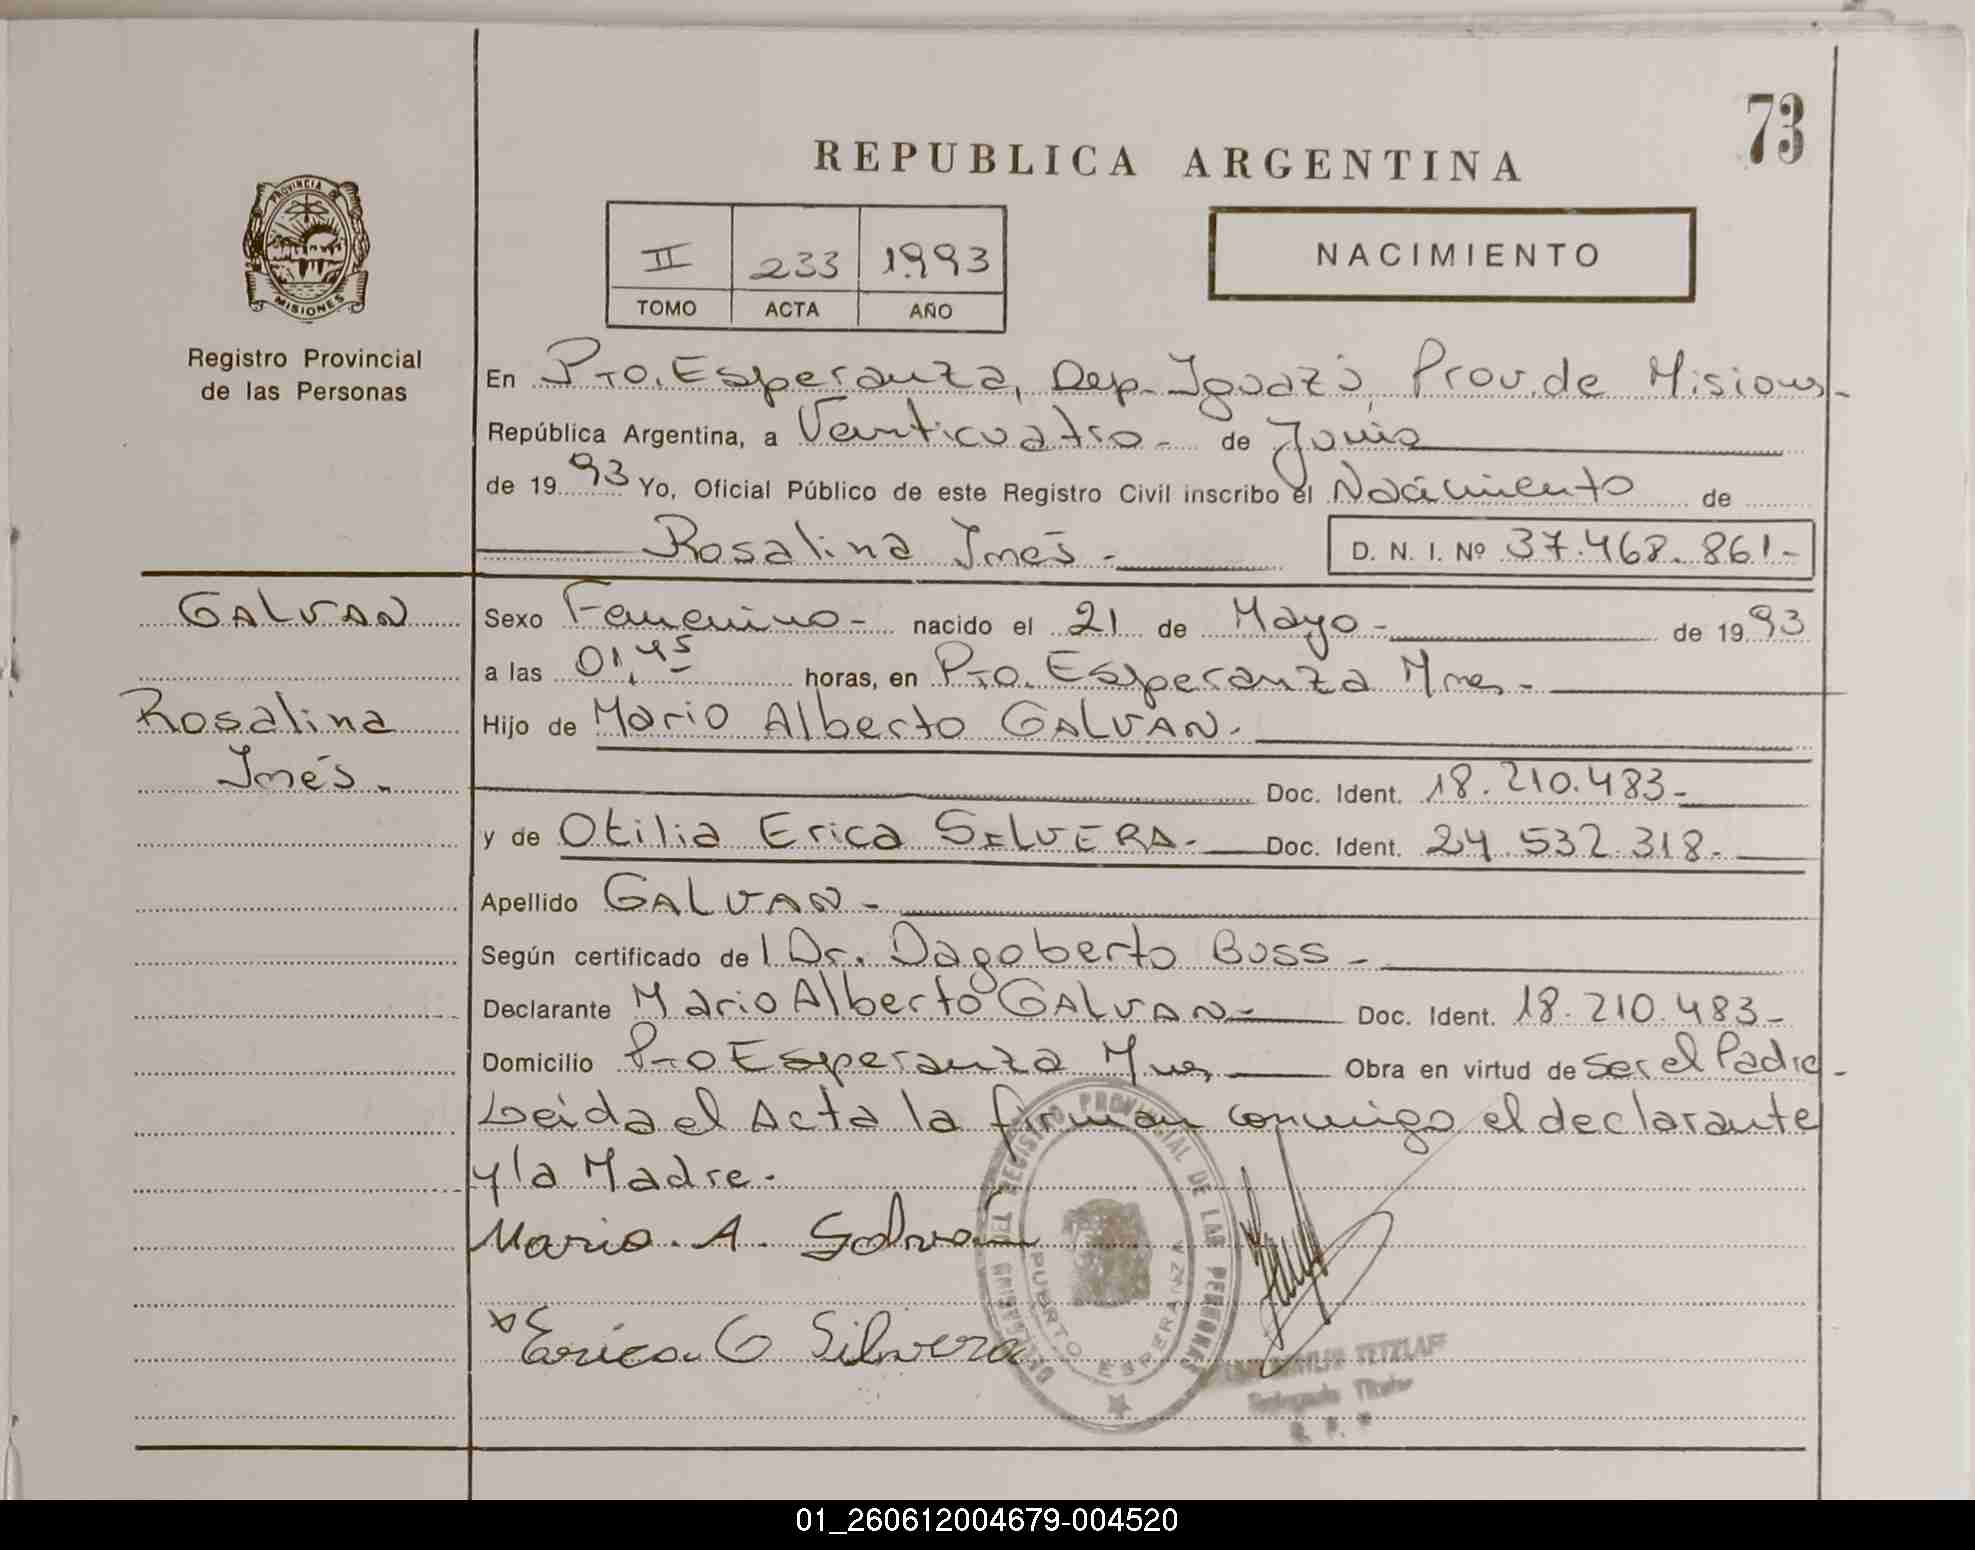 73
REPUBLICA ARGENTINA
PROVINCIA DE
MISIONES
Registro Provincial
de las Personas
II 233 1993
TOMO ACTA AÑO
NACIMIENTO
En Pto. Esperanza, Dep. Iguazú, Prov. de Misiones-
República Argentina, a Veinticuatro- de Junio
de 1993 Yo, Oficial Público de este Registro Civil inscribo el Nacimiento de
Rosalina Inés- D. N. I. Nº 37.468.861-
GALVAN
Rosalina
Inés.
Sexo Femenino- nacido el 21 de Mayo- de 1993
a las 01,45 horas, en Pto. Esperanza Mnes-
Hijo de Mario Alberto GALVAN.
Doc. Ident. 18.210.483-
y de Otilia Erica SILVERA- Doc. Ident. 24.532.318-
Apellido GALVAN-
Según certificado del Dr. Dagoberto Buss-
Declarante Mario Alberto GALVAN- Doc. Ident. 18.210.483-
Domicilio Pto Esperanza Mnes, Obra en virtud de ser el Padre-
Leida el Acta la firman conmigo el declarante
y la Madre.
Mario. A. Galvan
Erica O Silvera
REGISTRO PROVINCIAL DE LAS PERSONAS
PUERTO ESPERANZA
TETZLAFF
Titular
01_260612004679-004520